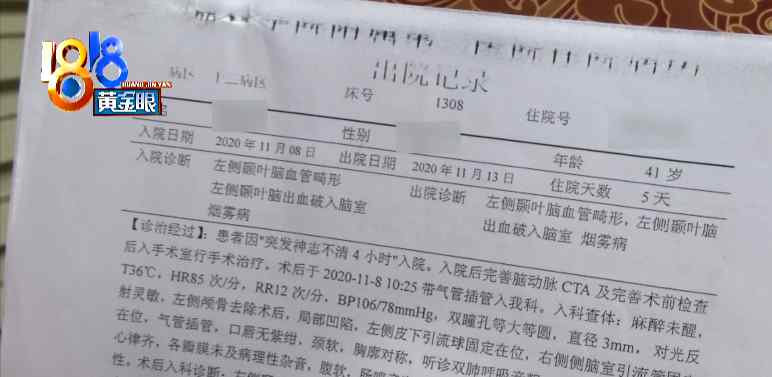 1818
HUANG JIN YAN
黄金眼
出院记录
病区
病区
床号
1308
住院号
性别
年龄
41 岁
入院日期
2020 年 11 月 08 日
出院日期
2020 年 11 月 13 日
住院天数
5 天
入院诊断
左侧颞叶脑血管畸形
左侧颞叶脑出血破入脑室
烟雾病
出院诊断
左侧颞叶脑血管畸形,左侧颞叶脑
出血破入脑室 烟雾病
【诊治经过】:患者因"突发神志不清 4 小时"入院。入院后完善脑动脉 CTA 及完善术前检查
后入手术室行手术治疗。术后于 2020-11-8 10:25 带气管插管入我科。入科查体:麻醉未醒,
T36℃,HR85 次/分,RR12 次/分,BP106/78mmHg,双瞳孔等大等圆,直径 3mm,对光反
射灵敏,左侧颅骨去除术后,局部凹陷,左侧皮下引流球固定在位,右侧侧脑室引流管固定
在位,气管插管,口唇无紫绀,颈软,胸廓对称,听诊双肺呼吸音
心律齐,各瓣膜未及病理性杂音,腹软,肠鸣
性。术后入科诊断:左侧